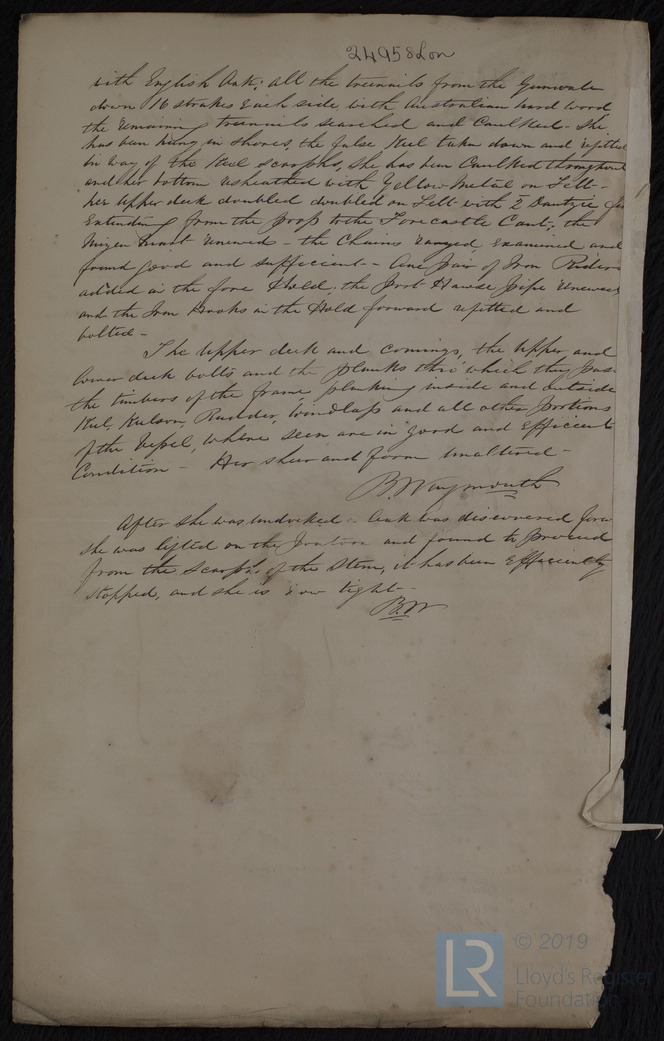 24958 Lon
with English Oak; all the treenails from the Gunwale
down 16 strakes Each side with Australian hard wood
the remaining treenails searched and Caulked - She
has been hung in shores, the false Keel taken down and refitted
in way of the Keel scarphs, She has been Caulked throughout
and her bottom resheathed with Yellow Metal on Felt -
her Upper deck doubled doubled on Felt with 2 Dantzic
Extending from the poop to the Forecastle Cant; the
Mizen Mast renewed - the Chains ranged Examined and
found good and sufficient - One pair of Iron Riders
added in the fore Hold, the Port Hawse pipe renewed
and the Iron Hooks in the Hold forward refitted and
bolted -
The Upper deck and comings, the Upper and
lower deck bolts and the planks thro which they pass
the timbers of the frame, planking inside and outside
Keel, Kelson, Rudder, Windlass and all other portions
of the Vessel, where seen are in good and Efficient
Condition - Her sheer and form unaltered -
B. Waymouth
After she was undocked a leak was discovered forwd
she was lifted on the Pontoon and found to proceed
from the scarph of the Stem, it has been Efficiently
stopped, and she is now tight -
B.W
LR
© 2019
Lloyd's Register
Foundation